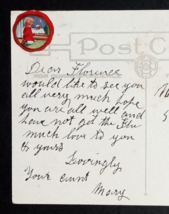 Post C
Dear Florence
would like to see you
all very much hope
you are all well and
have not got the Flu
much love to you
& yours
Lovingly
Your aunt
Mary